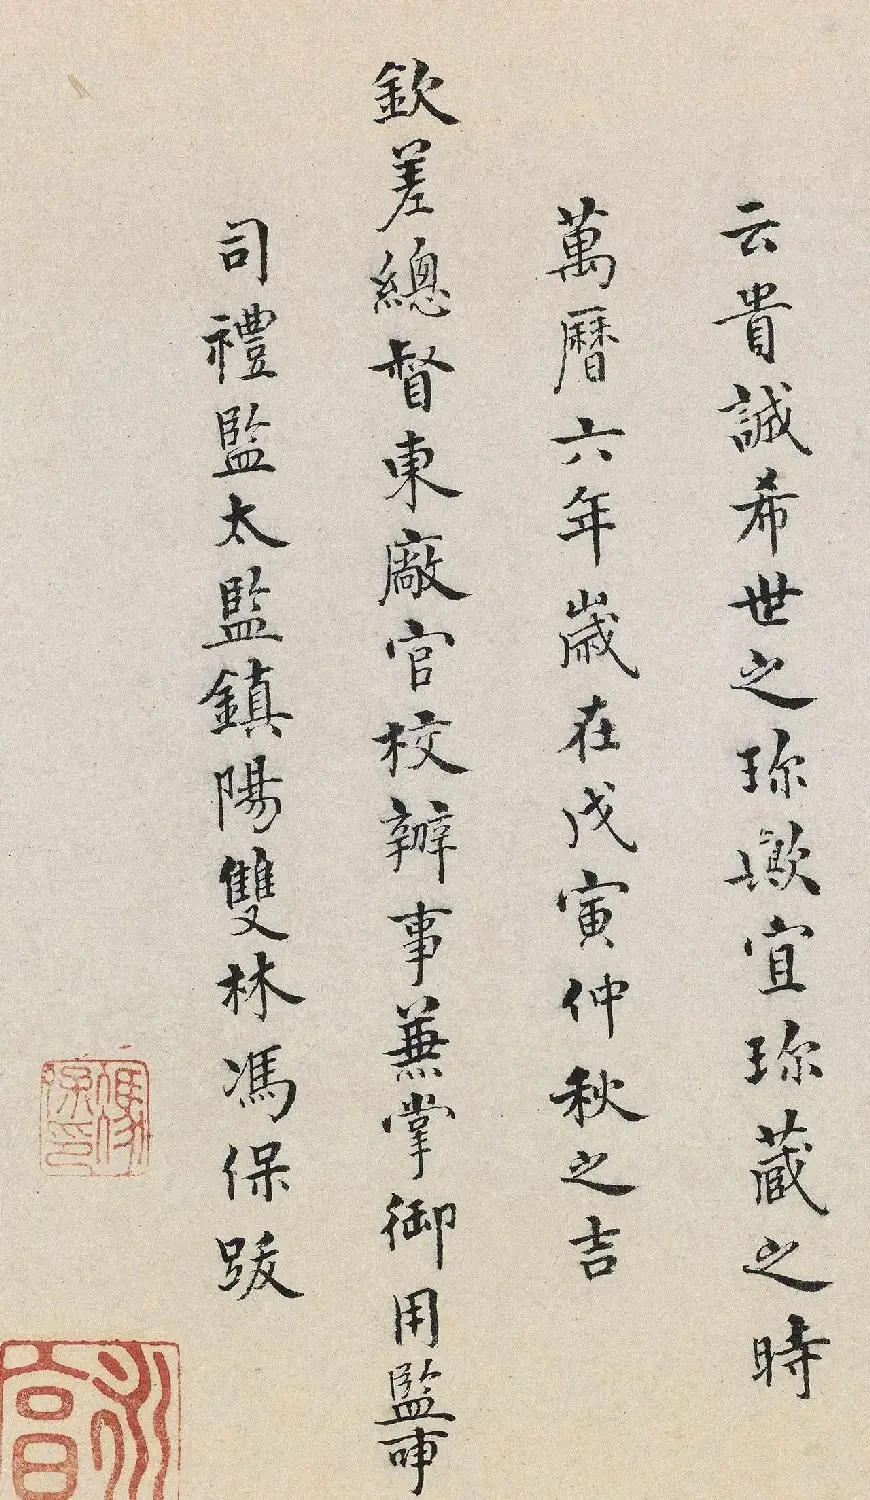 云貴誠希世之珎歟宜珎蔵之時
萬曆六年歲在戊寅仲秋之吉
欽差總督東廠官校辦事兼掌御用監事
司禮監太監鎮陽雙林馮保跋
馮保印